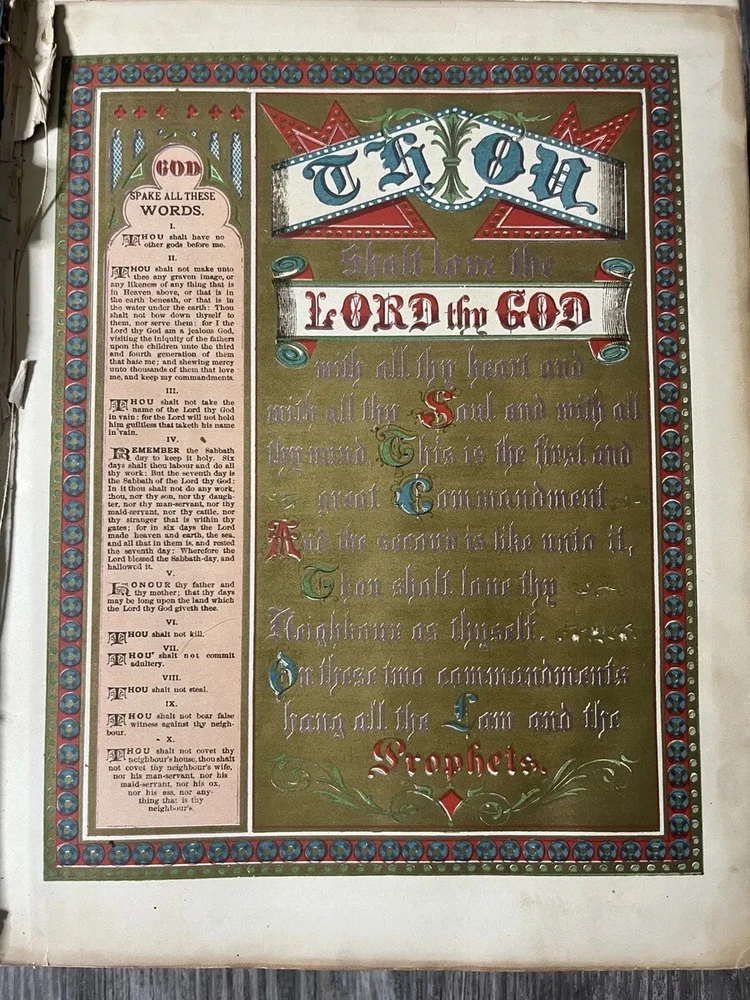 GOD
SPAKE ALL THESE
WORDS.
I.
THOU shalt have no
other gods before me.
II.
THOU shalt not make unto
thee any graven image, or
any likeness of any thing that is
in Heaven above, or that is in
the earth beneath, or that is in
the water under the earth: Thou
shalt not bow down thyself to
them, nor serve them: for I the
Lord thy God am a jealous God,
visiting the iniquity of the fathers
upon the children unto the third
and fourth generation of them
that hate me; and shewing mercy
unto thousands of them that love
me, and keep my commandments.
III.
THOU shalt not take the
name of the Lord thy God
in vain: for the Lord will not hold
him guiltless that taketh his name
in vain.
IV.
REMEMBER the Sabbath
day to keep it holy. Six
days shalt thou labour and do all
thy work: But the seventh day is
the Sabbath of the Lord thy God:
In it thou shalt not do any work,
thou, nor thy son, nor thy daugh-
ter, nor thy man-servant, nor thy
maid-servant, nor thy cattle, nor
thy stranger that is within thy
gates; for in six days the Lord
made heaven and earth, the sea,
and all that in them is, and rested
the seventh day: Wherefore the
Lord blessed the Sabbath-day, and
hallowed it.
V.
HONOUR thy father and
thy mother; that thy days
may be long upon the land which
the Lord thy God giveth thee.
VI.
THOU shalt not kill.
VII.
THOU shalt not commit
adultery.
VIII.
THOU shalt not steal.
IX.
THOU shalt not bear false
witness against thy neigh-
bour.
X.
THOU shalt not covet thy
neighbour's house, thou shalt
not covet thy neighbour's wife,
nor his man-servant, nor his
maid-servant, nor his ox,
nor his ass, nor any-
thing that is thy
neighbour's.
Thou
Shalt love the
LORD thy GOD
with all thy heart and
with all thy Soul and with all
thy mind This is the first and
great Commandment
And the second is like unto it,
Thou shalt love thy
Neighbour as thyself.
On these two commandments
hang all the Law and the
Prophets.